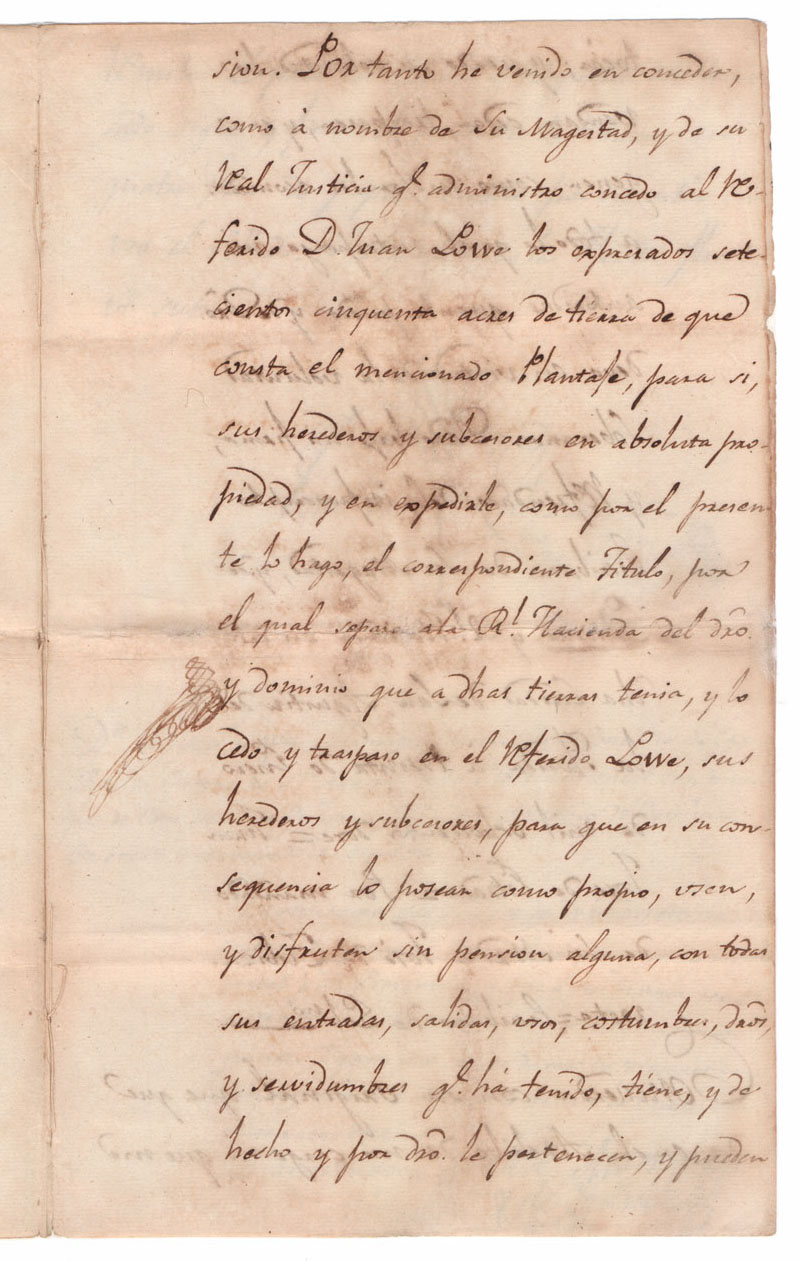 sion. Por tanto he venido en conceder,
como à nombre de Su Magestad, y de su
Real Justicia q.e administro concedo al Re-
ferido D. Juan Lowe los expresados sete-
cientos cinquenta acres de tierra de que
consta el mencionado Plantage, para si,
sus herederos y subcesores en absoluta pro-
piedad, y en expedirle, como por el presen-
te lo hago, el correspondiente Titulo, por
el qual separo ala R.l Hacienda del dro.
y dominio que a dhas tierras tenia, y lo
cedo y traspaso en el Referido Lowe, sus
herederos y subcesores, para que en su con-
sequencia lo posean como propio, usen,
y disfruten sin pension alguna, con todas
sus entradas, salidas, usos, costumbres, dros,
y servidumbres q.e há tenido, tiene, y de
hecho y por dro. le pertenecen, y pueden